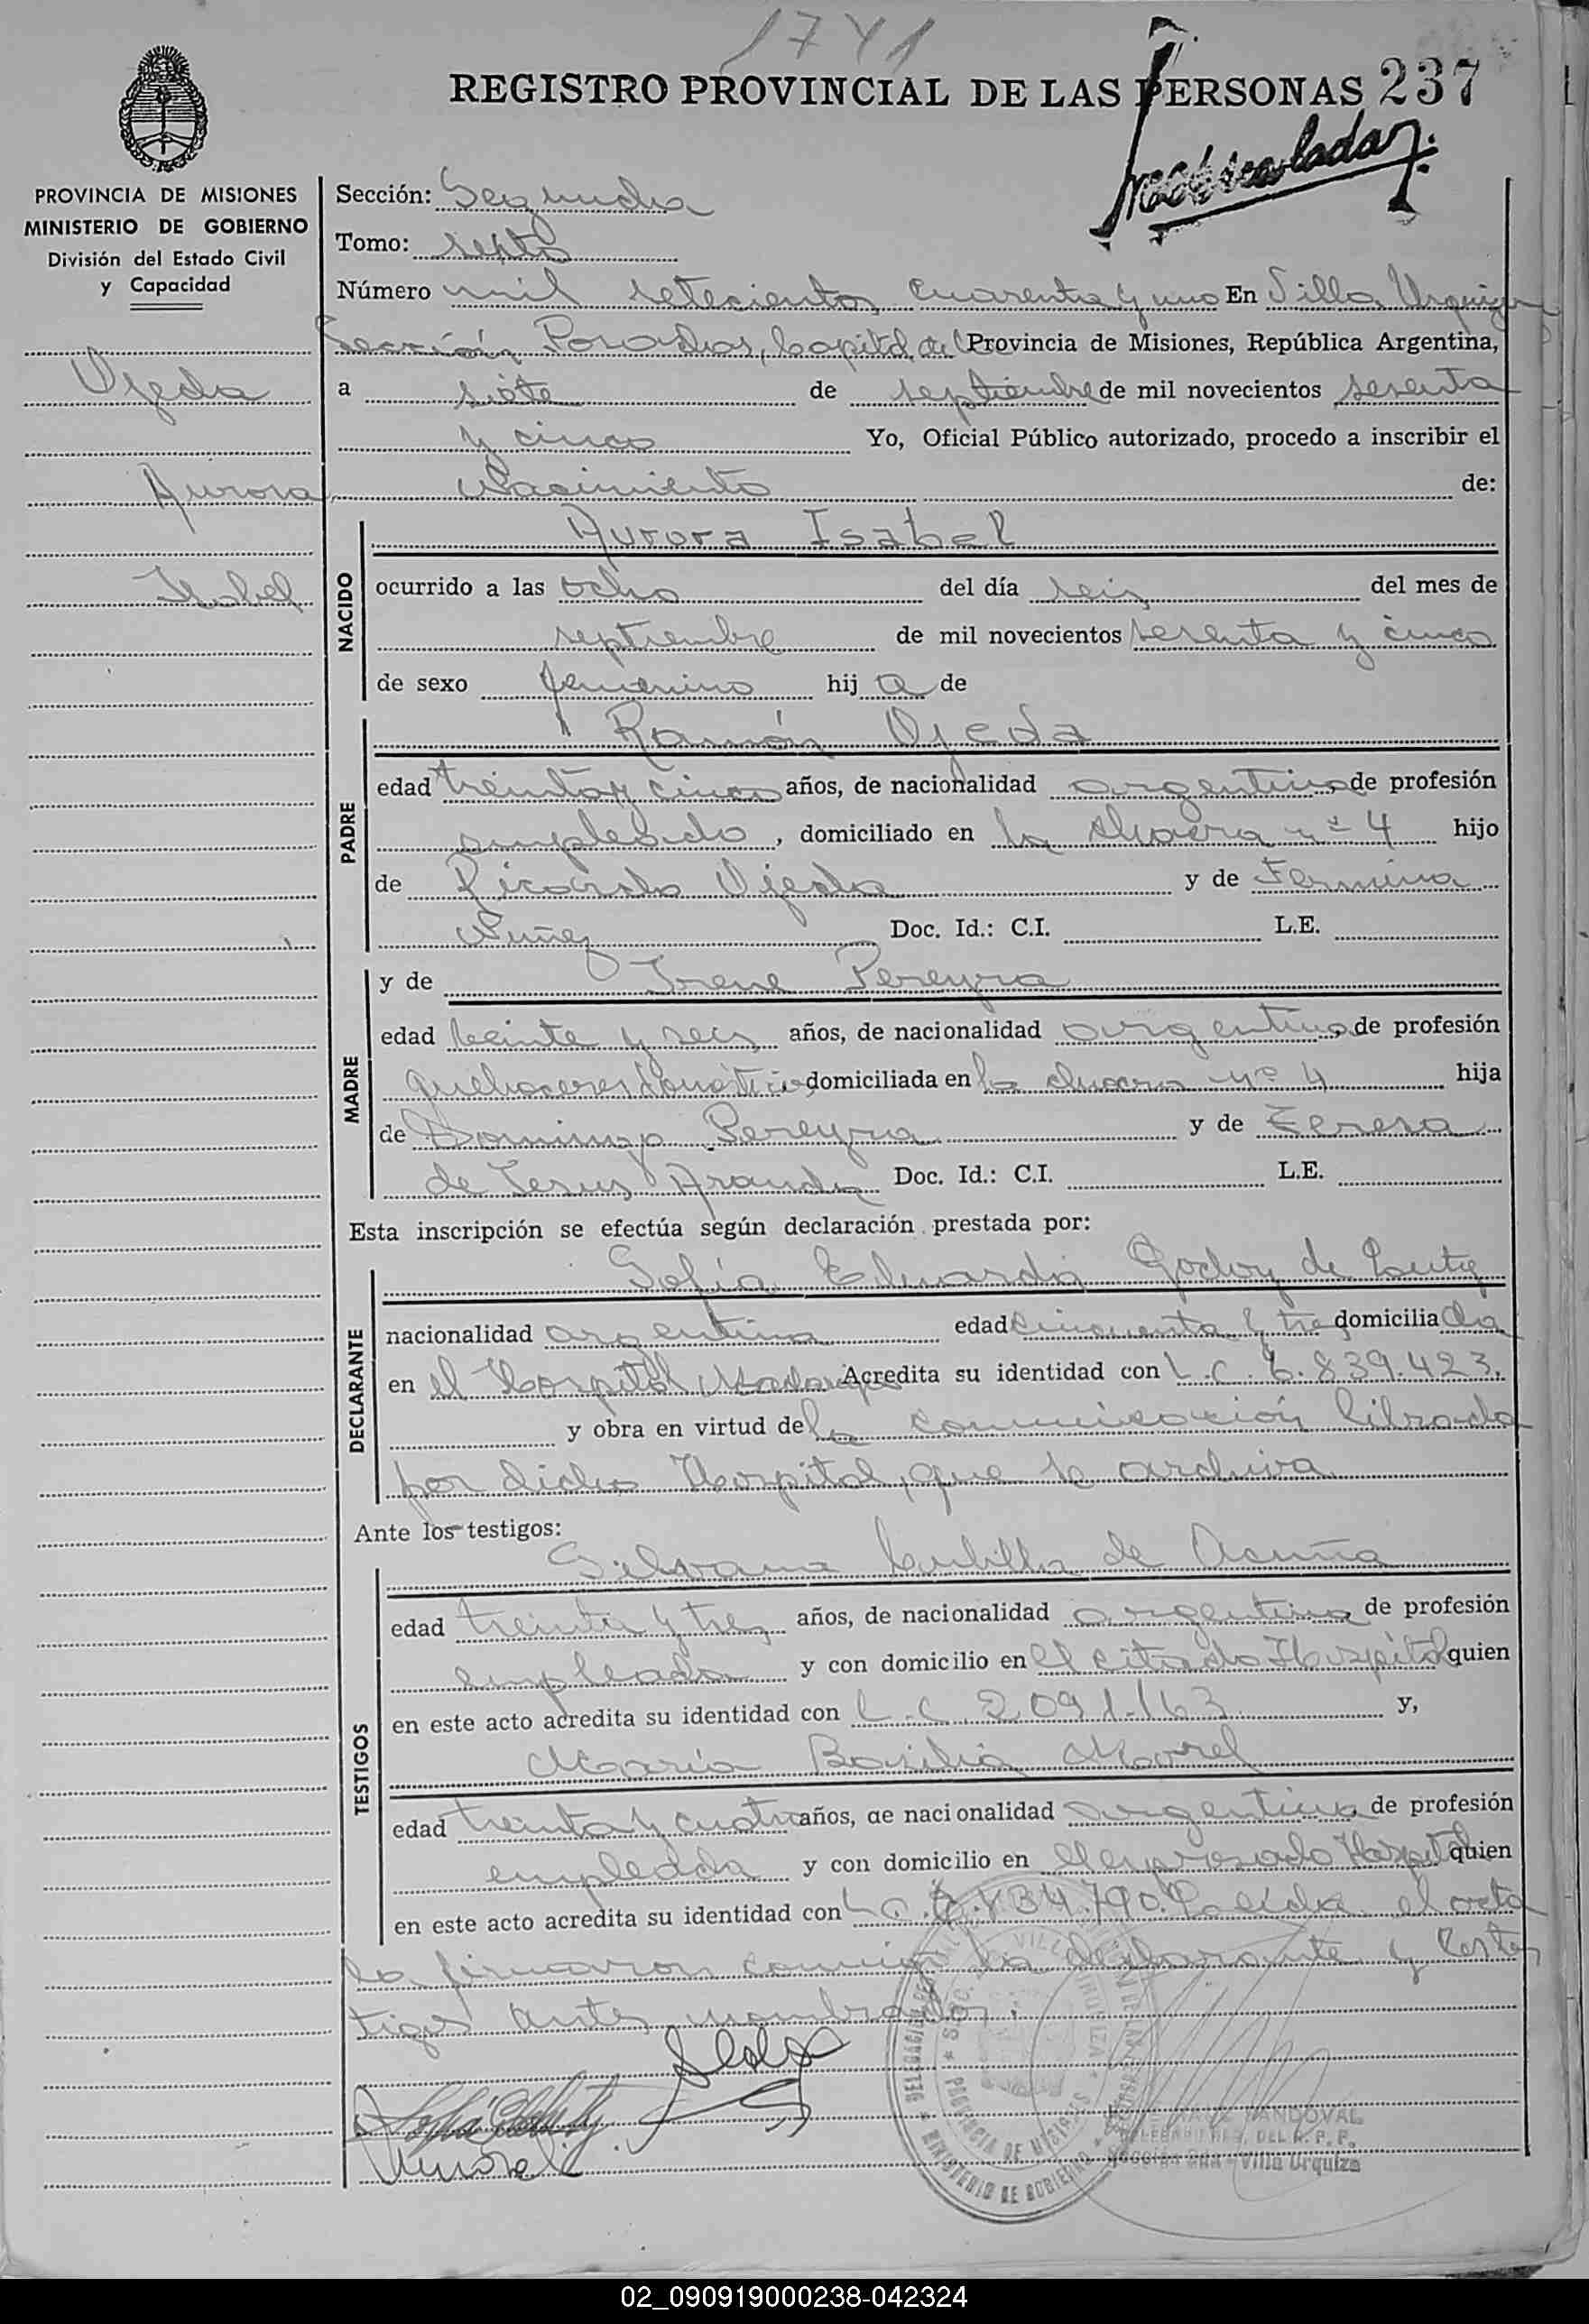 1741
REGISTRO PROVINCIAL DE LAS PERSONAS 237
PROVINCIA DE MISIONES
MINISTERIO DE GOBIERNO
División del Estado Civil
y Capacidad
Sección: Segunda
Tomo: septo
Número mil setecientos cuarenta y uno En Villa Urquiza
Sección Posadas, Capital de la Provincia de Misiones, República Argentina,
Ojeda
a siete de septiembre de mil novecientos sesenta
y cinco Yo, Oficial Público autorizado, procedo a inscribir el
Aurora
Nacimiento de:
Aurora Isabel
Isabel
NACIDO
ocurrido a las ocho del día seis del mes de
septiembre de mil novecientos sesenta y cinco
de sexo femenino hij a de
Ramón Ojeda
PADRE
edad treinta y cinco años, de nacionalidad argentina, de profesión
empleado, domiciliado en la chacra nº 4 hijo
de Ricardo Ojeda y de Fermina
Nuñez Doc. Id.: C.I. L.E.
MADRE
y de Irene Pereyra
edad beinte y seis años, de nacionalidad argentina, de profesión
quehaceres domésticos domiciliada en la chacra nº 4 hija
de Domingo Pereyra y de Teresa
de Jesus Aranda Doc. Id.: C.I. L.E.
Esta inscripción se efectúa según declaración prestada por:
DECLARANTE
Sofía Eduarda Godoy de
nacionalidad argentina edad cincuenta y tres domiciliada
en el Hospital Madariaga Acredita su identidad con L.C. 6.839.423.
y obra en virtud de la comunicación librada
por dicho Hospital, que se archiva.
Ante los testigos:
TESTIGOS
Silvana Cubilla de Acuña
edad treinta y tres años, de nacionalidad argentina, de profesión
empleada y con domicilio en el citado Hospital quien
en este acto acredita su identidad con L.C. 2.091.163 y,
María Basilia Morel
edad treinta y cuatro años, de nacionalidad argentina, de profesión
empleada y con domicilio en el expresado Hospital quien
en este acto acredita su identidad con L.C. Leída el acta
la firmaron conmigo la declarante y testes
tigos antes nombrados.
SANDOVAL
DEL R. P. P.
Villa Urquiza
02_090919000238-042324